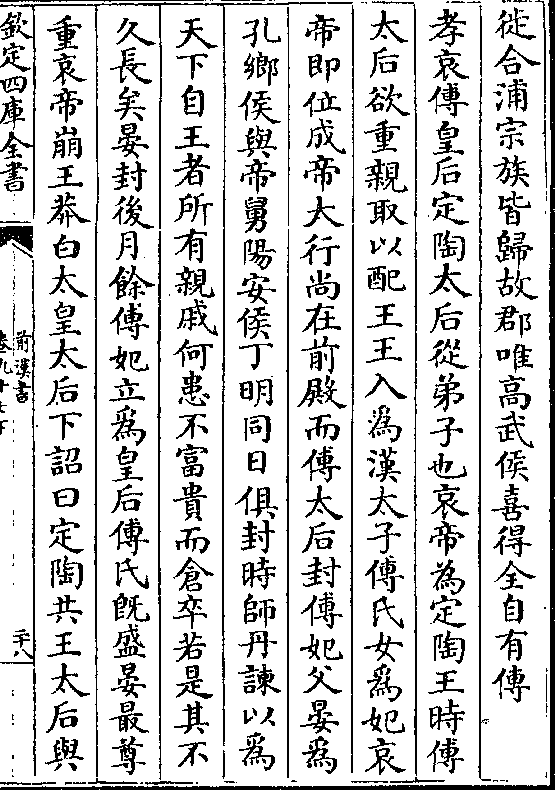 徙合浦宗族皆歸故郡唯髙武侯喜得全自有傳
孝哀傅皇后定陶太后從弟子也哀帝為定陶王時傅
太后欲重親取以配王王入為漢太子傅氏女為妃哀
帝即位成帝大行尚在前殿而傅太后封傅妃父晏為
孔鄉侯與帝舅陽安侯丁明同日俱封時師丹諫以為
天下自王者所有親戚何患不富貴而倉卒若是其不
久長矣晏封後月餘傅妃立為皇后傅氏既盛晏最尊
重哀帝崩王莽白太皇太后下詔曰定陶共王太后與
欽定四庫全書
前漢書
卷九十七下